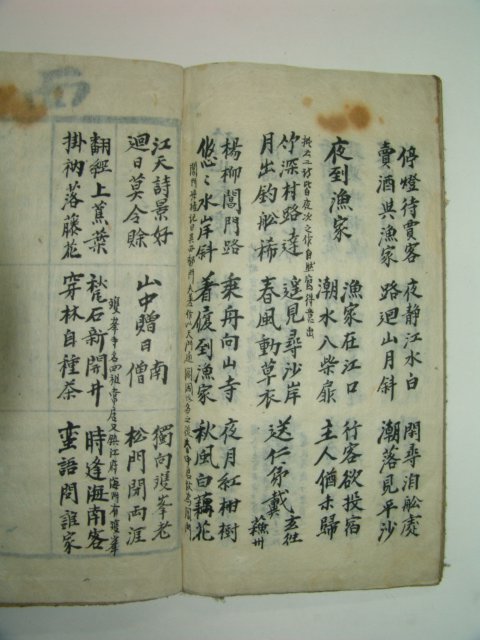 停燈待賈客 夜靜江水白 閑尋泊船處
賣酒與漁家 路迴山月斜 潮落見平沙
夜到漁家
漁家在江口 行客欲投宿
潮水入柴扉 主人猶未歸
竹深村路遠 遙見尋沙岸
月出釣船稀 春風動草衣
送從弟戴玄往蘇州
楊柳閶門路 乘舟向山寺 夜月紅柑樹
悠〻水岸斜 着屐到漁家 秋風白藕花
江天詩景好
迴日莫令賒
山中贈日南僧
獨向雙峯老
松門閉兩涯
雙峯寺名四祖常居又鎮江府海門有雙峯
翻經上蕉葉 甃石新開井 時逢海南客
掛衲落藤花 穿林自種茶 蠻語問誰家